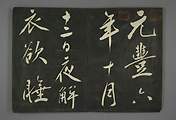 元豐六
年十月
十二日夜解
衣欲睡